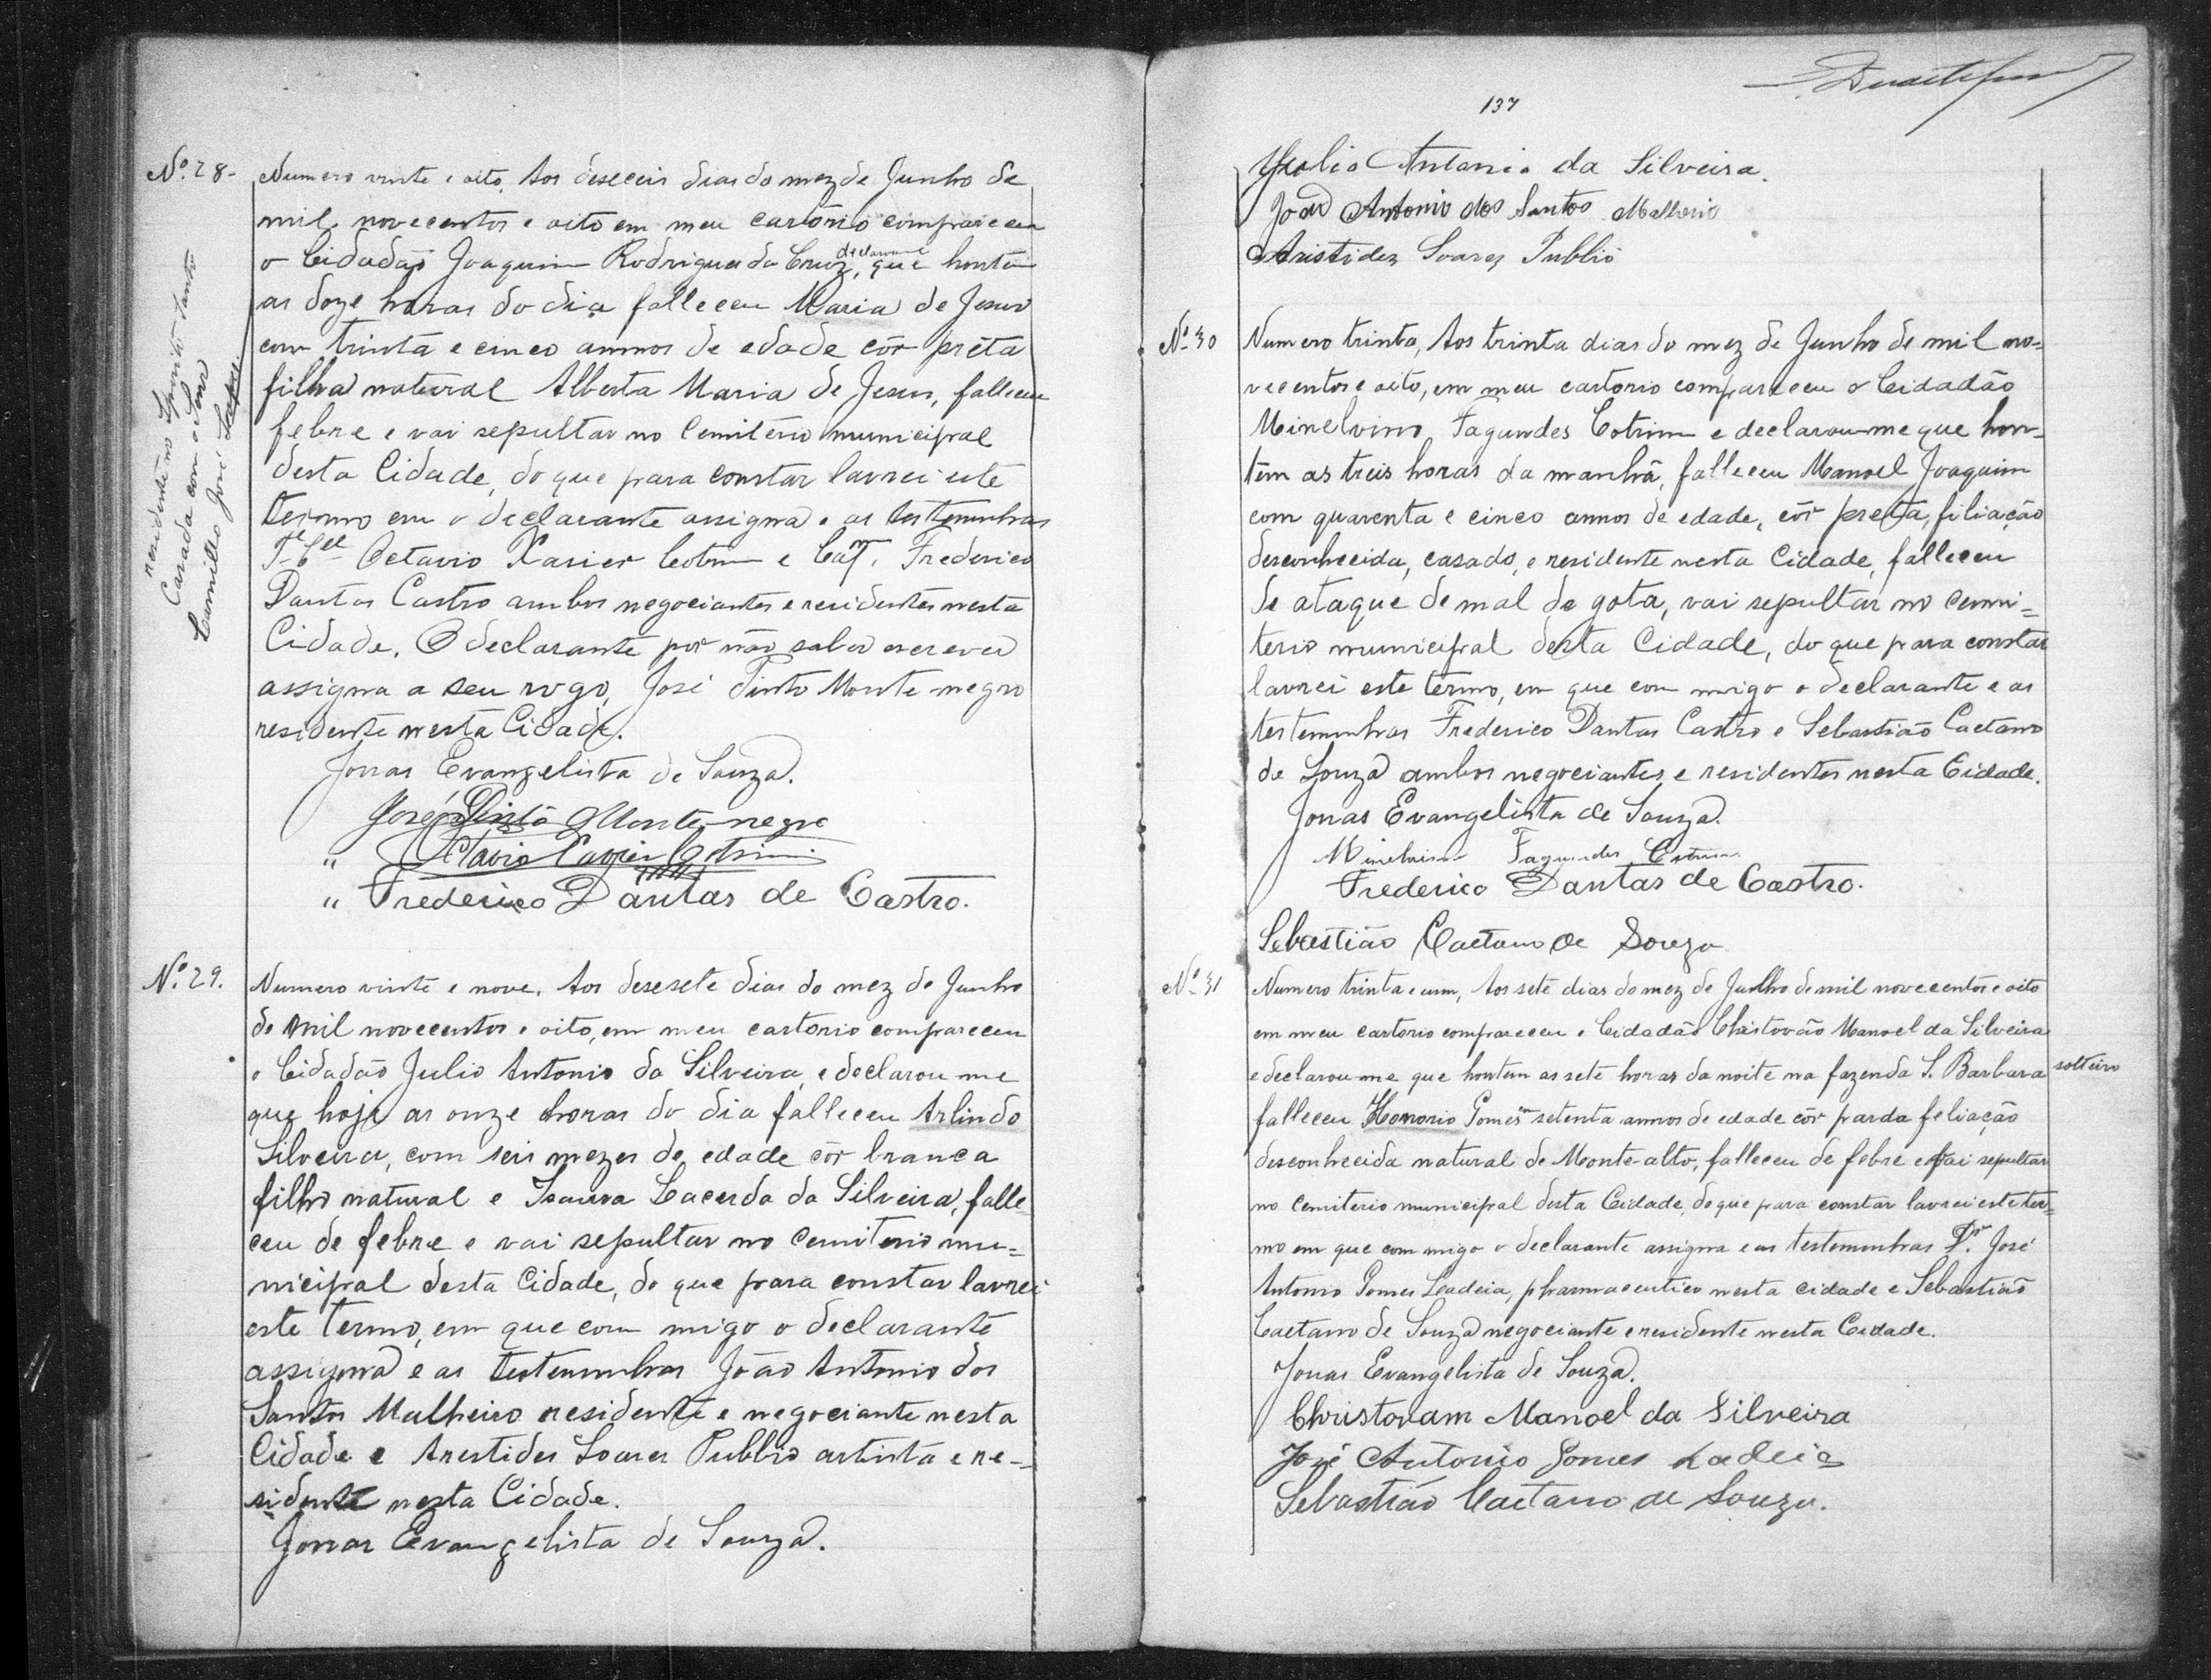 Nº 28-
Numero vinte e oito, Aos deseceis dias do mez de Junho de
mil novecentos e oito em meu cartorio compareceu
o Cidadão Joaquim Rodrigues da Cruz, declarando que hontem
as doze horas do dia falleceu Maria de Jesus
com trinta e cinco annos de edade côr prêta
filha natural Alberta Maria de Jesus, falleceu
febre e vai sepultar no Cemiterio municipal
desta Cidade, do que para constar lavrei este
termo em o declarante assigna e as testemunhas
Te Cel Octavio Xavier Cotrim e Cap. Frederico
Dantas Castro ambos negociantes e residentes nesta
Cidade. O declarante por não saber escrever
assigna a seu rogo, José Pinto Monte-negro
residente nesta Cidade.
Jonas Evangelista de Souza.
José Pinto Monte-negro
" Octavio Xavier Cotrim
" Frederico Dantas de Castro.
residente no Spirito Santo
Casada com o Senr
Camillo José
Nº 29.
Numero vinte e nove, Aos desesete dias do mez de Junho
de mil novecentos e oito, em meu cartorio compareceu
o Cidadão Julio Antonio da Silveira, e declarou me
que hoje as onze horas do dia falleceu Arlindo
Silveira, com seis mezes de edade côr branca
filho natural e Isaura Lacerda da Silveira, falle-
ceu de febre e vai sepultar no Cemiterio mu=
nicipal desta Cidade, do que para constar lavrei
este termo, em que com migo o declarante
assigna e as testemunhas João Antonio dos
Santos Malheiro residente e negociante nesta
Cidade e Arestides Soares Publio artista e re-
sidente nesta Cidade.
Jonas Evangelista de Souza.
137
Julio Antonio da Silveira.
João Antonio dos Santos Malheiro
Aristides Soares Publio
Nº 30
Numero trinta, Aos trinta dias do mez de Junho de mil no=
vecentos e oito, em meu cartorio compareceu o Cidadão
Minelvino Fagundes Cotrim e declarou-me que hon-
tem as treis horas da manhã, falleceu Manoel Joaquim
com quarenta e cinco annos de edade, côr preta, filiação
desconhecida, casado, e residente nesta Cidade, falleceu
de ataque de mal de gota, vai sepultar no cemi-
terio municipal desta Cidade, do que para constar
lavrei este termo, em que com migo o declarante e as
testemunhas Frederico Dantas Castro e Sebastião Caetano
de Souza ambos negociantes e residentes nesta Cidade.
Jonas Evangelista de Souza.
Minelvino Fagundes Cotrim
Frederico Dantas de Castro.
Sebastião Caetano de Souza
Nº 31
Numero trinta e um, Aos sete dias do mez de Julho de mil novecentos e oito
em meu cartorio compareceu o Cidadão Christovão Manoel da Silveira
e declarou-me que hontem as sete horas da noite na fazenda S. Barbara solteiro
falleceu Honorio Gomes setenta annos de edade côr parda feliação
desconhecida natural de Monte-alto, falleceu de febre e vai sepultar
no Cemiterio municipal desta Cidade, do que para constar lavrei este ter=
mo em que com migo o declarante assigna e as testemunhas Dr. José
Antonio Gomes Ladeia, pharmaceutico nesta cidade e Sebastião
Caetano de Souza negociante e residente nesta Cidade.
Jonas Evangelista de Souza.
Christovam Manoel da Silveira
José Antonio Gomes Ladeia
Sebastião Caetano de Souza.